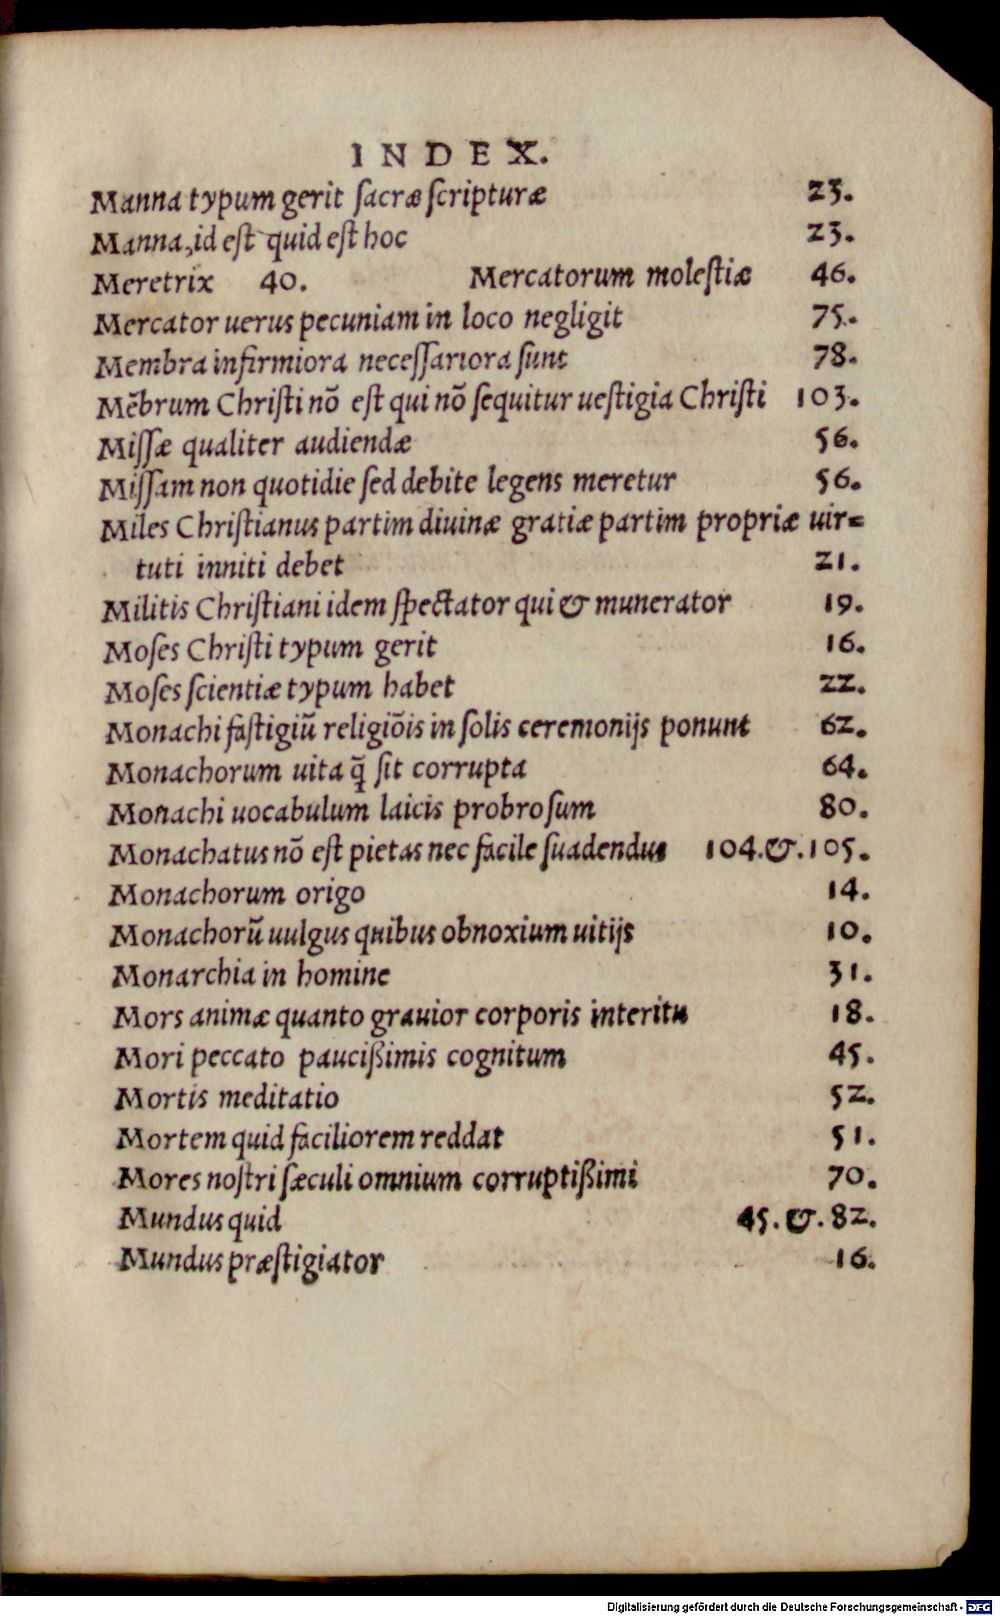 INDEX.
Manna typum gerit ſacræ ſcripturæ 23.
Manna, id eſt quid eſt hoc 23.
Meretrix 40. Mercatorum moleſtiæ 46.
Mercator uerus pecuniam in loco negligit 75.
Membra infirmiora neceſſariora ſunt 78.
Mẽbrum Chriſti nõ eſt qui nõ ſequitur ueſtigia Chriſti 103.
Miſſæ qualiter audiendæ 56.
Miſſam non quotidie ſed debite legens meretur 56.
Miles Chriſtianus partim diuinæ gratiæ partim propriæ uir=
tuti inniti debet 21.
Militis Chriſtiani idem ſpectator qui & munerator 19.
Moſes Chriſti typum gerit 16.
Moſes ſcientiæ typum habet 22.
Monachi faſtigiũ religiõis in ſolis ceremonijs ponunt 62.
Monachorum uita q̃ ſit corrupta 64.
Monachi uocabulum laicis probroſum 80.
Monachatus nõ eſt pietas nec facile ſuadendus 104.&.105.
Monachorum origo 14.
Monachorũ uulgus quibus obnoxium uitijs 10.
Monarchia in homine 31.
Mors animæ quanto grauior corporis interitu 18.
Mori peccato pauciſſimis cognitum 45.
Mortis meditatio 52.
Mortem quid faciliorem reddat 51.
Mores noſtri ſæculi omnium corruptißimi 70.
Mundus quid 45.&.82.
Mundus præſtigiator 16.
Digitalisierung gefördert durch die Deutsche Forschungsgemeinschaft - DFG